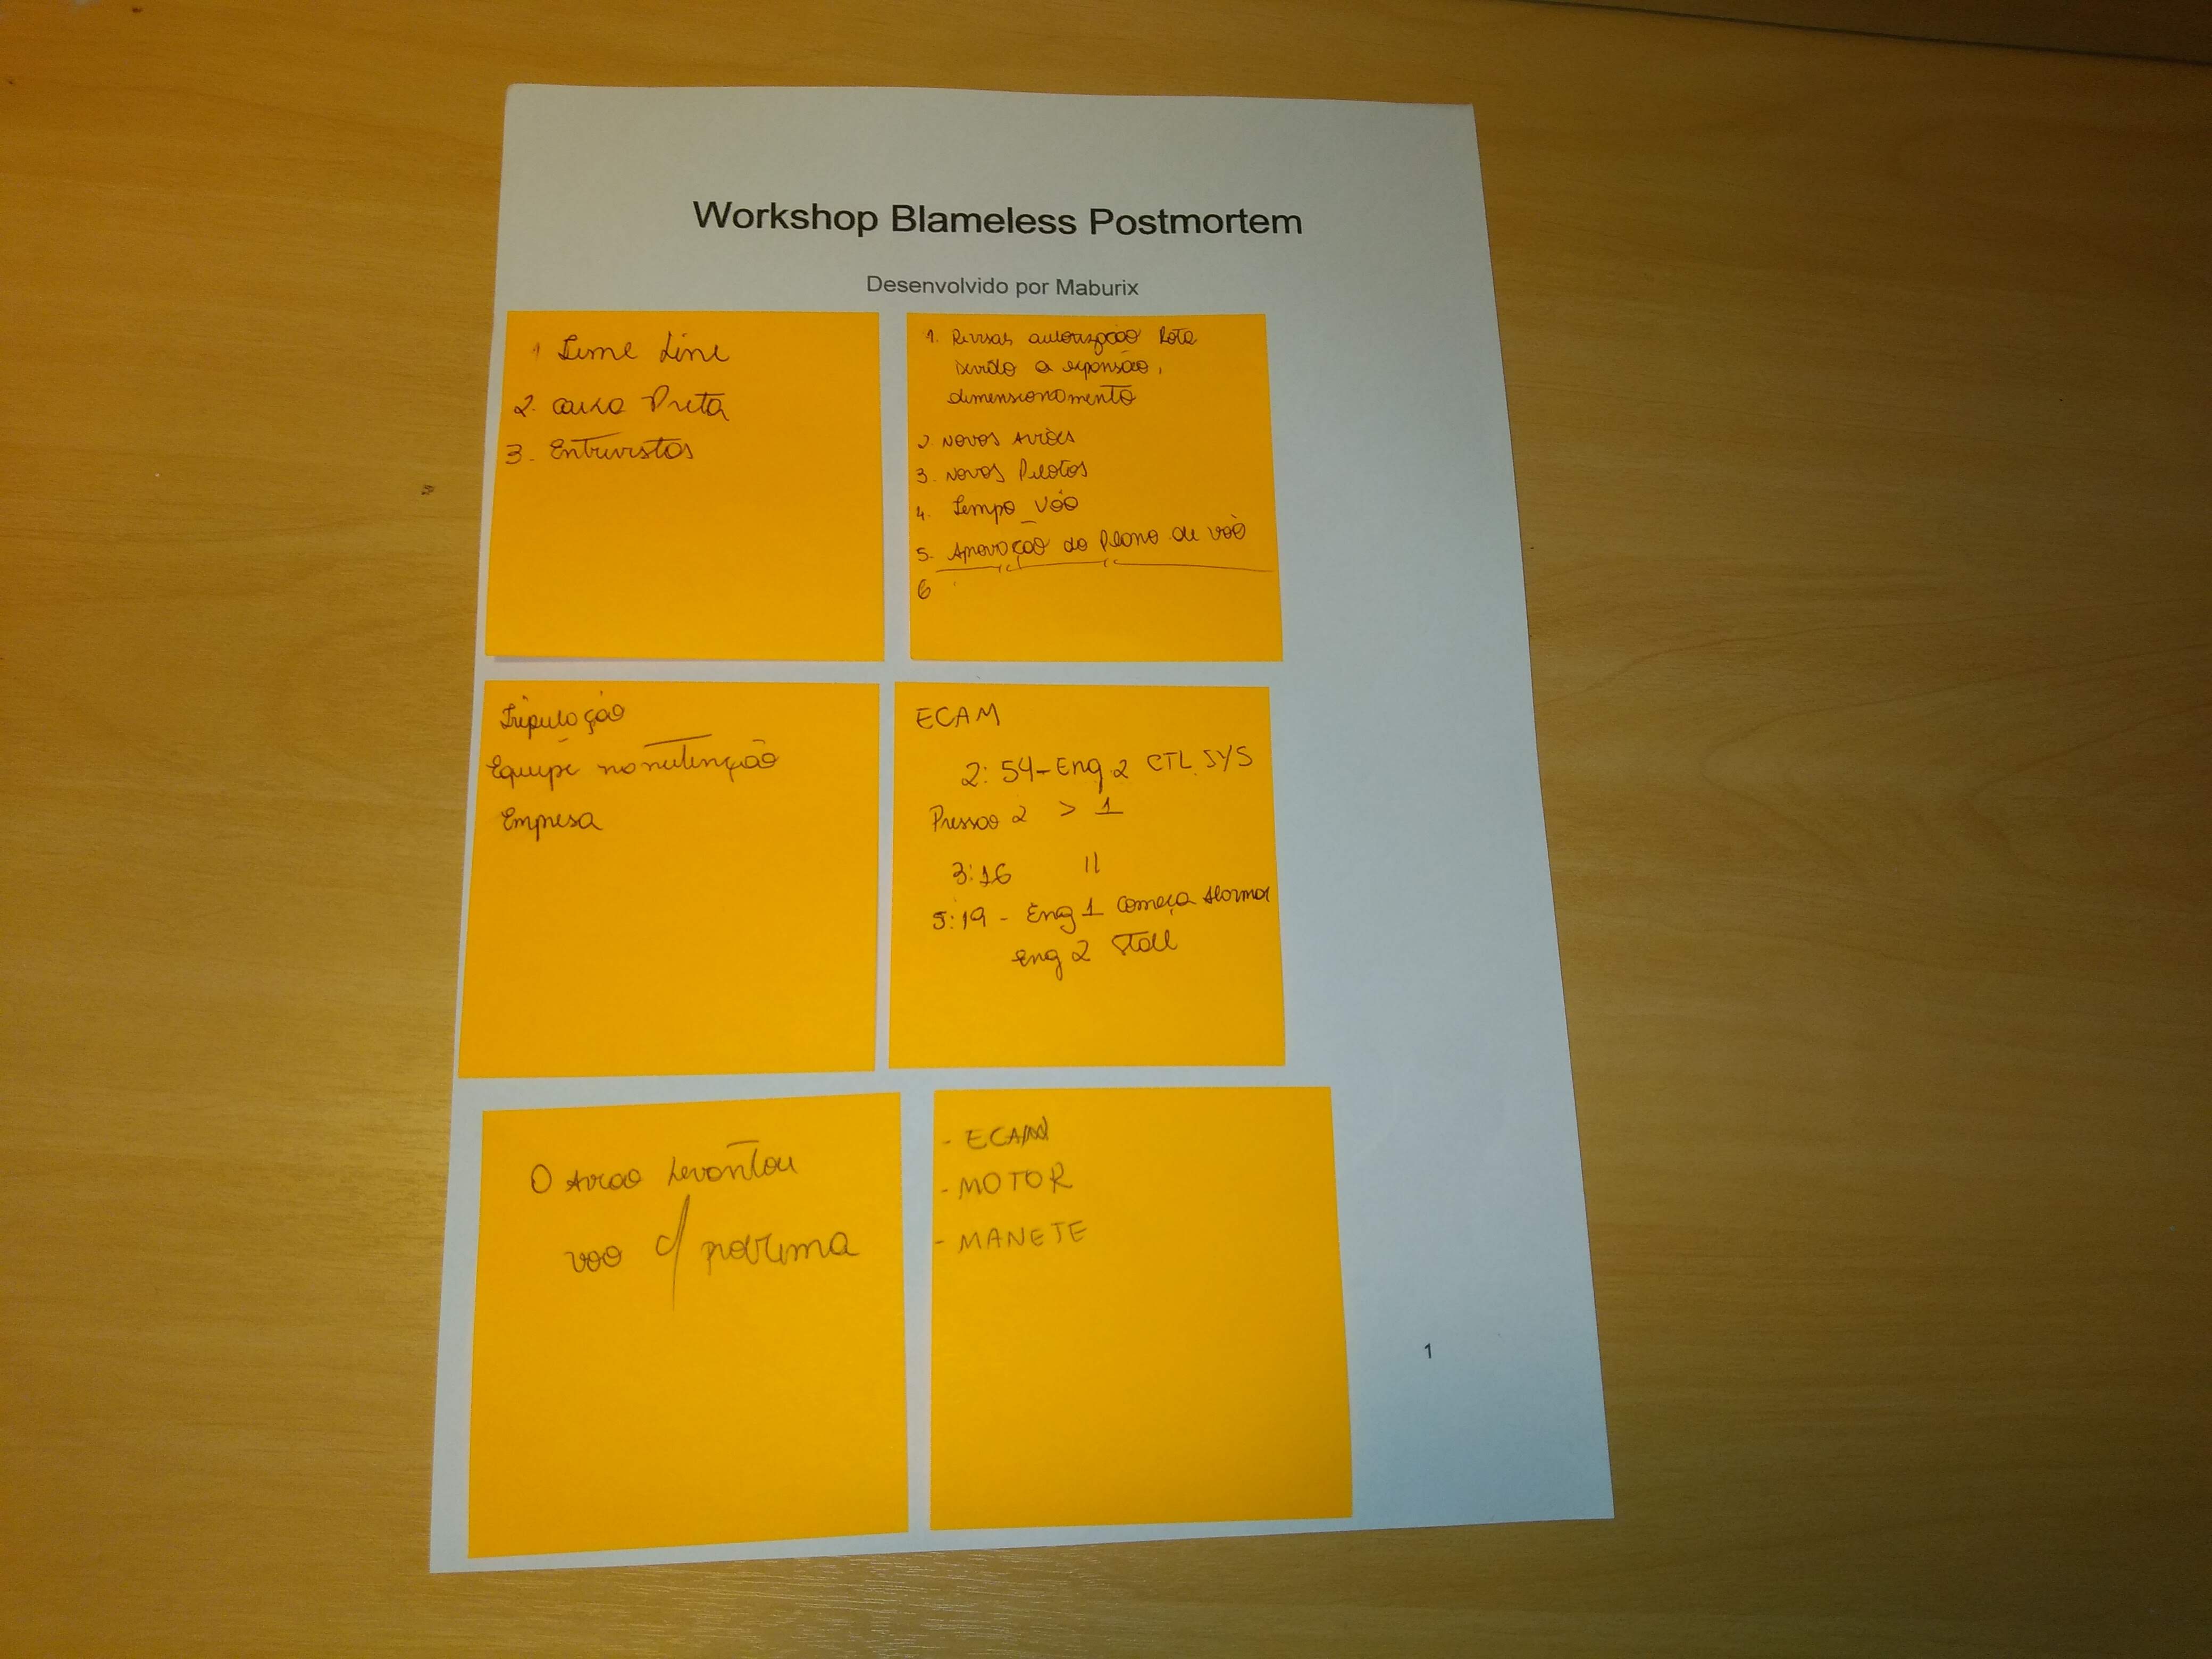 Workshop Blameless Postmortem
Desenvolvido por Maburix
1 Time Line
2. caixa Preta
3. Entrevistas
1. Revisas autorização Rota
devido a expansão,
dimensionamento
2. Novos Aviões
3. Novos Pilotos
4. Tempo Vôo
5. Aprovação do Plano de vôo
6
Tripulação
Equipe manutenção
Empresa
ECAM
2:54-Eng 2 CTL SYS
Pressao 2 > 1
3:16 11
5:19 - Eng 1 começa Alarmar
eng 2 Stall
O Aviao Levantou
voo c/
- ECAM
- MOTOR
- MANETE
1